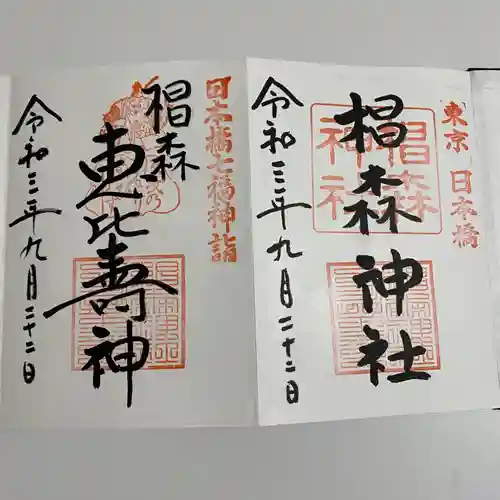 東京 日本橋
椙森神社
椙森
神社
令和三年九月二十二日
日本橋七福神詣
椙森
恵比寿神
令和三年九月二十二日